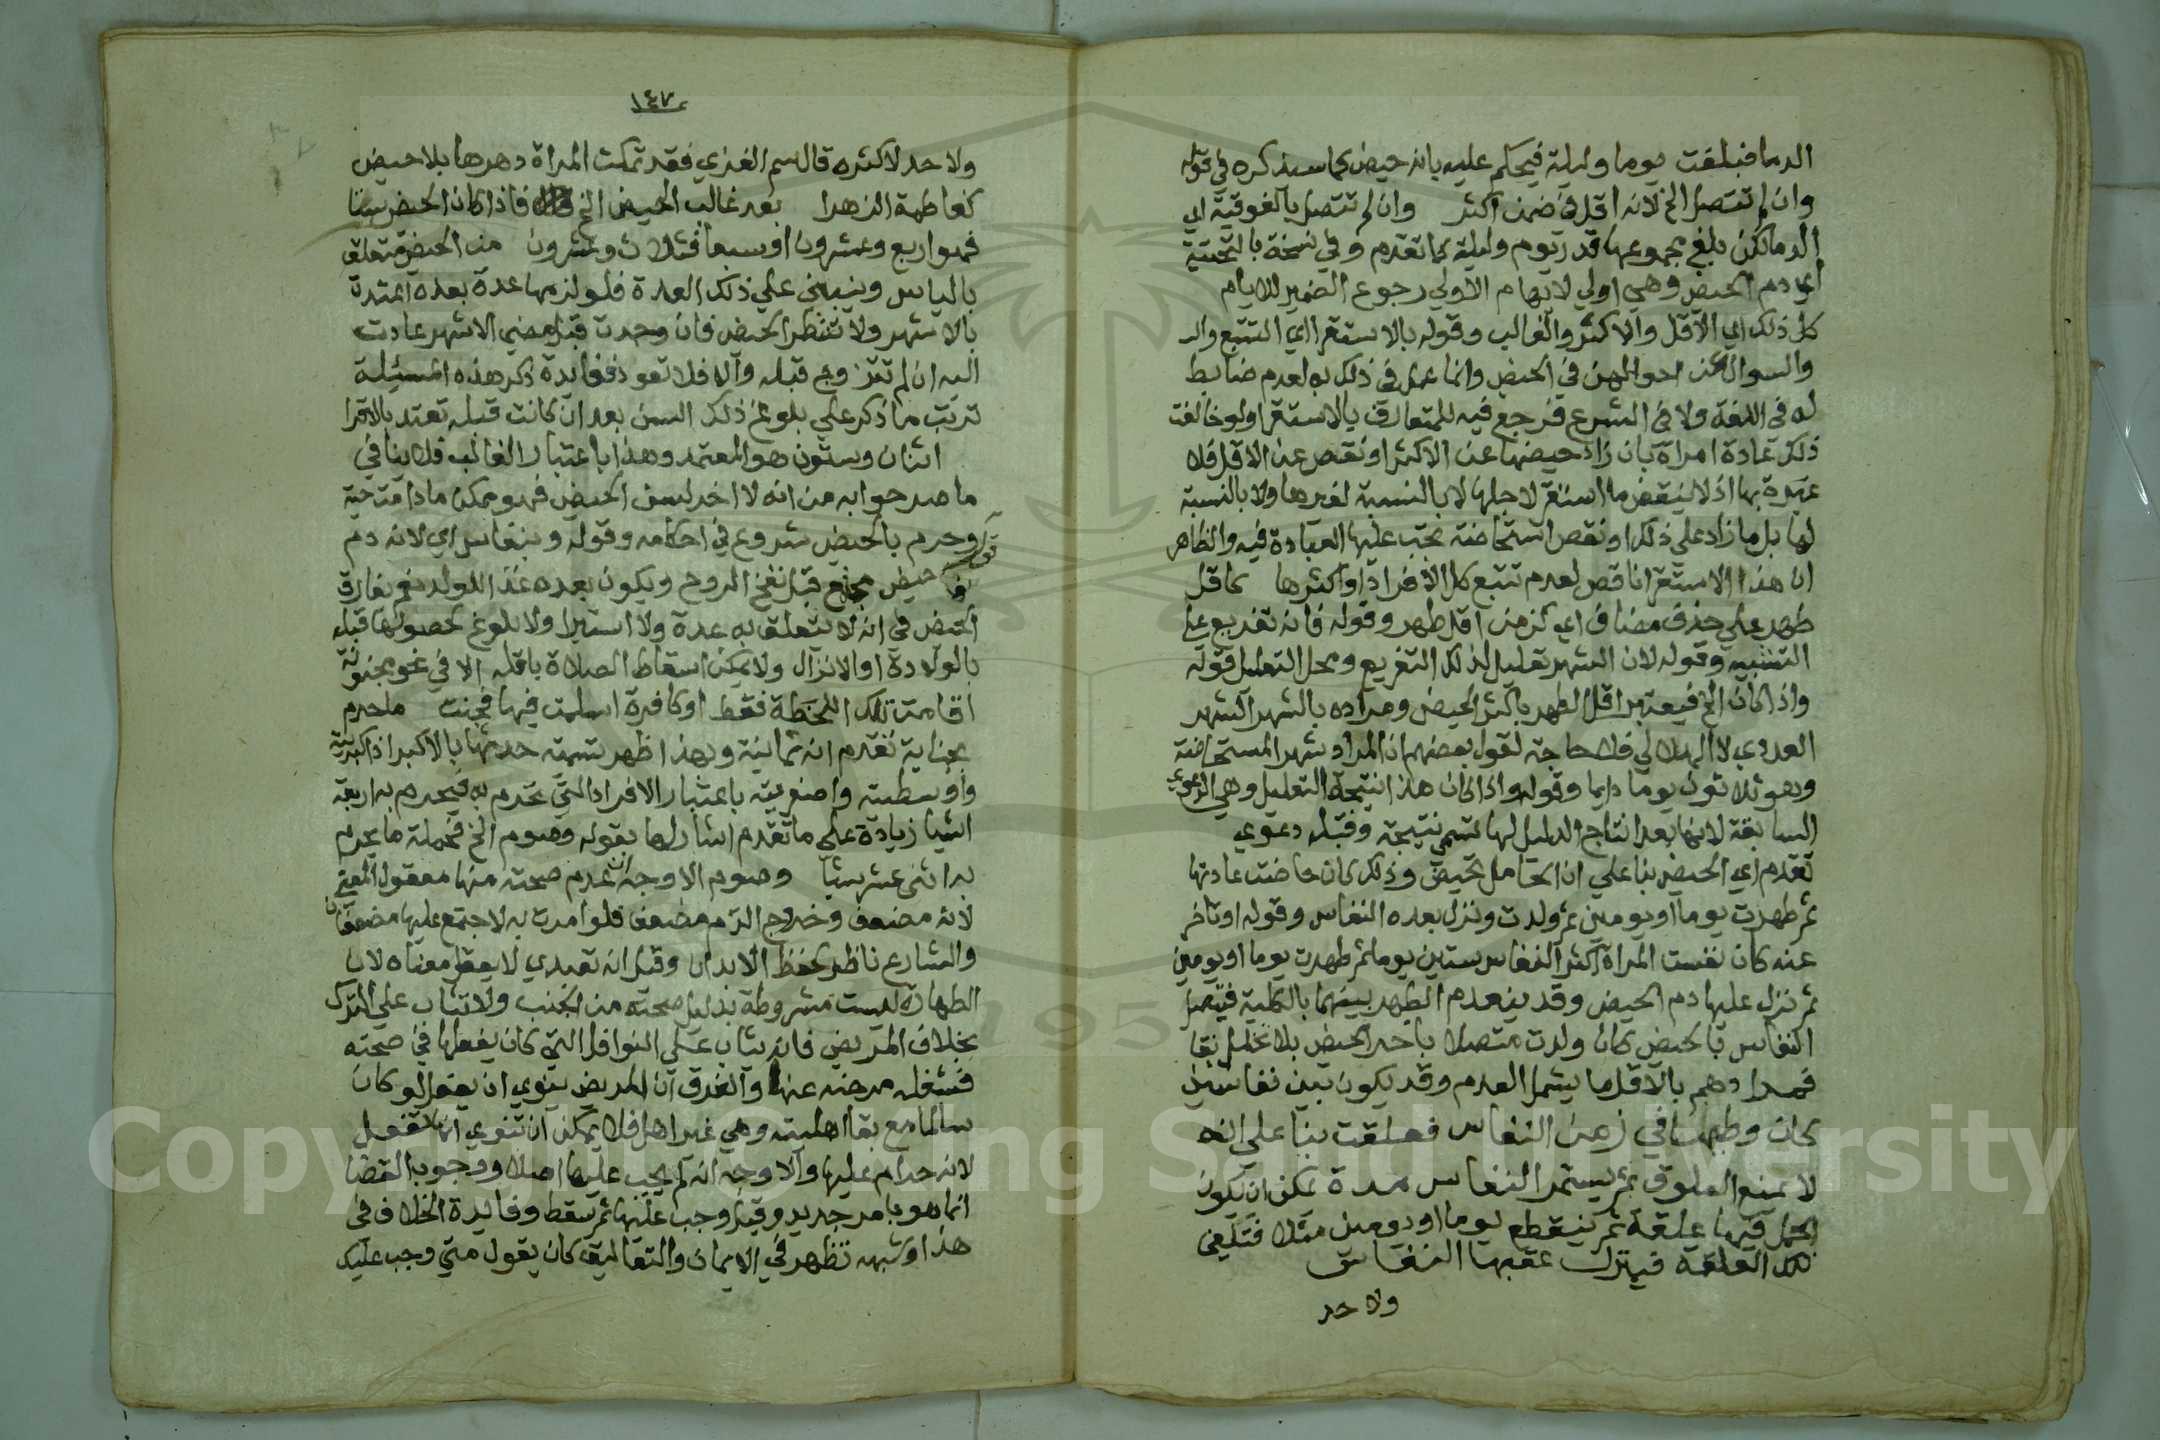 الدما فبلغت يوما وليلة فيحكم عليه بانه حيض كما سيذكره في قوله
وان لم تتصل الخ لانه اقل في ضمن اكثر وان لم تتصل بالفوقية اي
الدما لكن بلغ مجموعها قدر يوم وليلة كما تقدم وفي نسخة بالتحتية
اي دم الحيض وهي اولي لايهام الاولي رجوع الضمير للايام
كل ذلك اي الاقل والاكثر والغالب وقوله بالاستقرا اي التتبع
والسوال عن احوالهن في الحيض وانما عمل في ذلك به لعدم ضابط
له في اللغة ولا في الشرع فرجع فيه للمتعارف بالاستقرا ولو خالفت
ذلك عادة امراة بان زاد حيضها عن الاكثر او نقص عن الاقل فلا
عبرة بها اذ لا ينقض ما استقر لاجلها لا بالنسبة لغيرها ولا بالنسبة
لها بل ما زاد علي ذلك او نقص استحاضة تجب عليها العبادة فيه والظاهر
ان هذا الاستقرا ناقص لعدم تتبع كل الافراد او اكثرها كاقل
طهر علي حذف مضاف اي كزمن اقل طهر وقوله فانه تفريع علي
التشبيه وقوله لان الشهر تعليل لذلك التفريع ومحل التعليل قوله
واذا كان الخ فيعتبر اقل الطهر باكثر الحيض ومراده بالشهر الشهر
العددي لا الهلالي فلا حاجة لقول بعضهم ان المراد شهر المستحاضة
وهو ثلاثون يوما دايما وقوله واذا كان هذا نتيجة التعليل وهي الدعوي
السابقة لانها بعد انتاج الدليل لها تسمي نتيجة وقبله دعوي
تقدم اي الحيض بنا علي ان الحامل تحيض وذلك كان حاضت عادتها
ثم طهرت يوما او يومين ثم ولدت ونزل بعده النفاس وقوله او تاخر
عنه كان نفست المراة اكثر النفاس ستين يوما ثم طهرت يوما او يومين
ثم نزل عليها دم الحيض وقد ينعدم الطهر بينهما بالكلية فيتصل
النفاس بالحيض كان ولدت متصلا باخر الحيض بلا تخلل نقا
فمرادهم بالاقل ما يشمل العدم وقد يكون بين نفاسين
كان وطيها في زمن النفاس فعلقت بنا علي انه
لا يمنع العلوق ثم يستمر النفاس مدة يمكن ان يكون
الحمل فيها علقة ثم ينقطع يوما او يومين مثلا فتلقي
تلك العلقة فينزل عقبها النفاس
ولا حد
١٤٧
ولا حد لاكثره قال سم الغزي فقد تمكث المراة دهرها بلا حيض
كفاطمة الزهرا بعد غالب الحيض الخ فاذا كان الحيض ستا
فهو اربع وعشرون او سبعا فثلاث وعشرون من الحيض متعلق
بالياس وينبني علي ذلك العدة فلو لزمها عدة بعده اعتدت
بالاشهر ولا تنتظر الحيض فان وجدت قبل مضي الاشهر عادت
اليه ان لم تتزوج قبله والا فلا تعود ففايدة ذكر هذه المسيلة
ترتب ما ذكر علي بلوغ ذلك السن بعد ان كانت قبله تعتد بالاقرا
اثنان وستون هو المعتمد وهذا باعتبار الغالب فلا ينافي
ما صرحوا به من انه لا اخر لسن الحيض فهو ممكن ما دامت حية
قوله
وحرم بالحيض شروع في احكامه وقوله وبنفاس اي لانه دم
حيض مجتمع قبل نفخ الروح ويكون بعده غذا للولد نعم يفارق
الحيض في انه لا تتعلق به عدة ولا استبرا ولا بلوغ لحصولها قبله
بالولادة او الانزال ولا يمكن اسقاط الصلاة باقله الا في نحو مجنونة
افاقت تلك اللحظة فقط او كافرة اسلمت فيها فجنت ما حرم
بجناية تقدم انه ثمانية وبهذا ظهر تسمية حدثها بالاكبر اذ اكبريته
واوسطيته واصغريته باعتبار الافراد التي تحرم به فيحرم به اربعة
اشيا زيادة علي ما تقدم اشار لها بقوله وصوم الخ فجملة ما يحرم
به اثني عشر شيا وصوم الاوجه ان عدم صحته منها معقول المعني
لانه مضعف وخروج الدم مضعف فلو امرت به لاجتمع عليها مضعفان
والشارع ناظر لحفظ الابدان وقيل انه تعبدي لا يعقل معناه لان
الطهارة ليست مشروطة بدليل صحته من الجنب ولا تثاب علي الترك
بخلاف المريض فانه يثاب علي النوافل التي كان يفعلها في صحته
فشغله مرضه عنها والفرق ان المريض ينوي ان يفعل لو كان
سالما مع بقا اهليته وهي غير اهل فلا يمكن ان تنوي انها تفعل
لانه حرام عليها والاوجه انه لم يجب عليها اصلا ووجوب القضا
انما هو بامر جديد وقيل وجب عليها ثم سقط وفايدة الخلاف في
هذا وشبهه تظهر في الايمان والتعاليق كان يقول متي وجب عليك